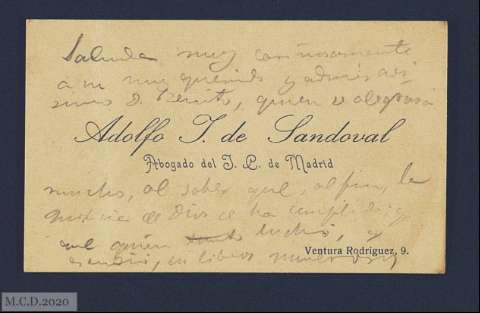 Saluda muy cariñosamente
a su muy querido y admiradi
simo D. Benito, quien se alegrará
Adolfo T. de Sandoval
Abogado del I. C. de Madrid
mucho, al saber que, al fin, la
de Dios se ha cumplido, y
que quien luchó, y
en libros
Ventura Rodríguez, 9.
M.C.D.2020